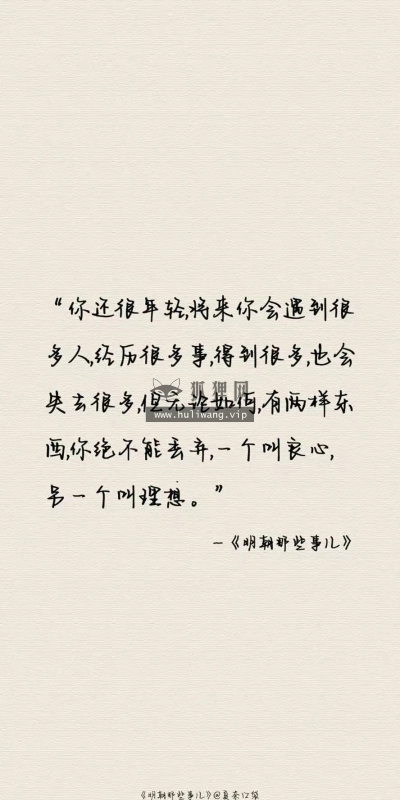 “你还很年轻,将来你会遇到很
多人,经历很多事,得到很多,也会
失去很多,但无论如何,有两样东
西,你绝不能丢弃,一个叫良心,
另一个叫理想。”
—《明朝那些事儿》
狐狸网
www.huliwang.vip
《明朝那些事儿》@夏茶口袋